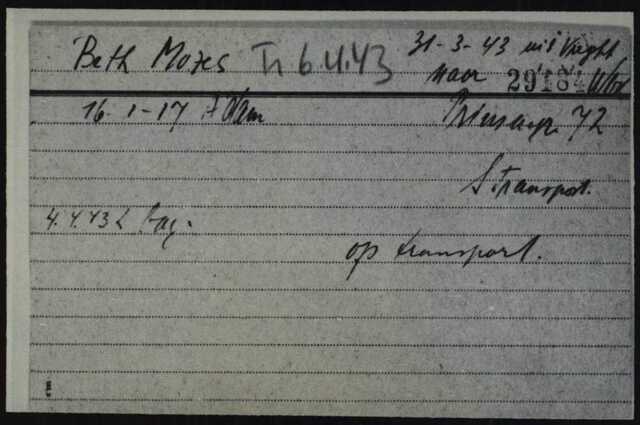 Beth Mozes Tr 6.4.43 31-3-43 uit Vught
naar 29184
16-1-17 A'dam 72
S. transport.
4.4.43
op transport.